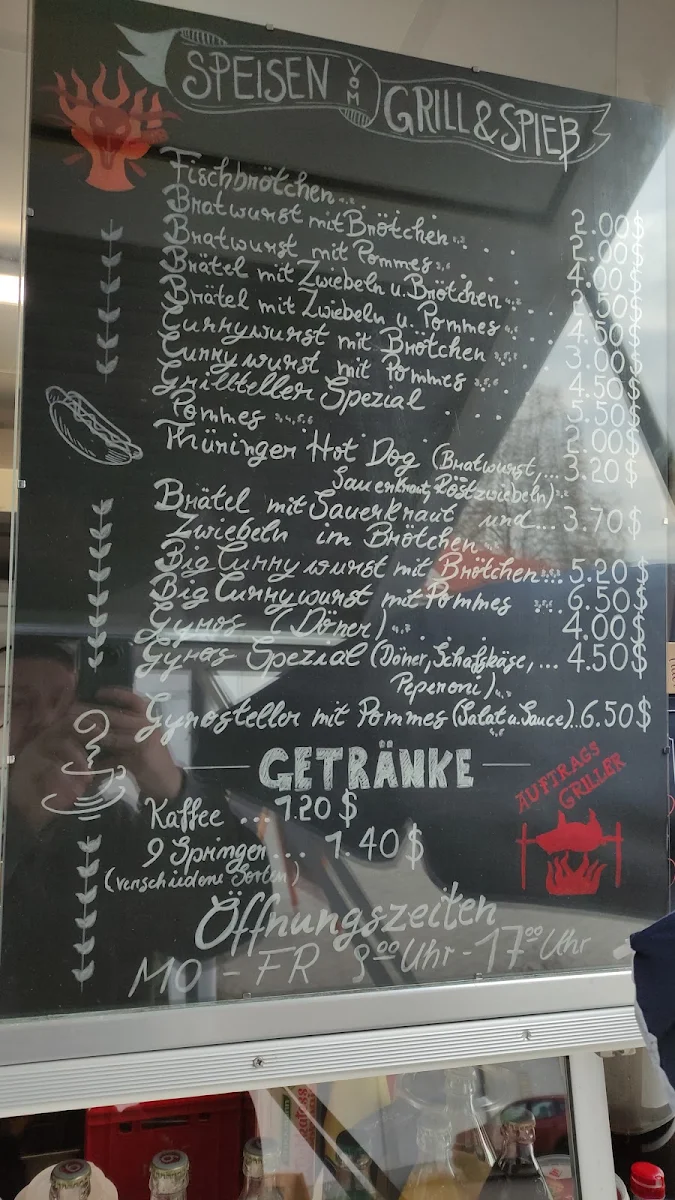 SPEISEN VOM GRILL & SPIEß
Fischbrötchen . . . . . 2.00$
Bratwurst mit Brötchen . . . 2.00$
Bratwurst mit Pommes . . . 4.00$
Brätel mit Zwiebeln u. Brötchen . . 2.50$
Brätel mit Zwiebeln u. Pommes . . 4.50$
Currywurst mit Brötchen . . 3.00$
Currywurst mit Pommes . . 4.50$
Grillteller Spezial . . . 5.50$
Pommes 3,4,5,6 . . . 2.00$
Thüringer Hot Dog (Bratwurst,... 3.20$
Sauerkraut, Röstzwiebeln)
Brätel mit Sauerkraut und... 3.70$
Zwiebeln im Brötchen
Big Currywurst mit Brötchen... 5.20$
Big Currywurst mit Pommes ... 6.50$
Gyros (Döner) . . . 4.00$
Gyros Spezial (Döner, Schafskäse, ... 4.50$
Peperoni)
Gyrosteller mit Pommes (Salat u. Sauce)... 6.50$
GETRÄNKE
AUFTRAGS
GRILLER
Kaffee ... 1.20 $
9 Springer ... 1.40 $
(verschiedene Sorten)
Öffnungszeiten
MO - FR 9⁰⁰ Uhr - 17⁰⁰ Uhr